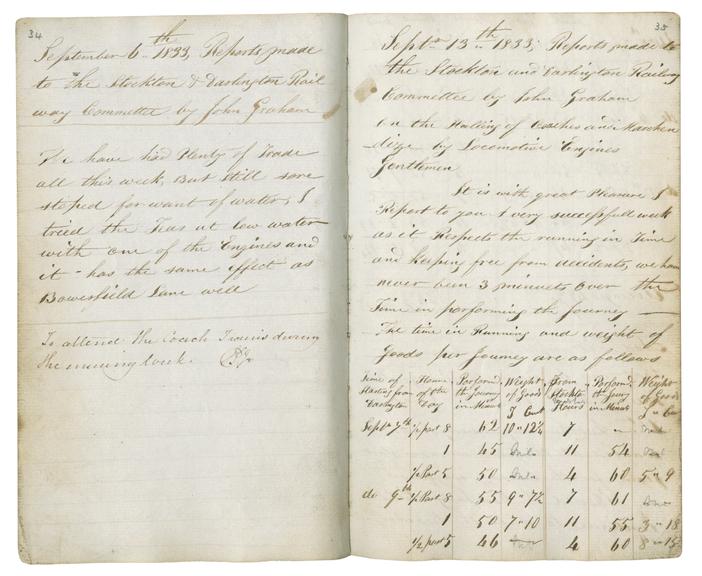 34
September 6th 1833, Reports made
to the Stockton & Darlington Rail
way Committee by John Graham
We have had Plenty of Trade
all this week, But still sore
stoped for want of water, I
tried the Teas at low water
with one of the Engines and
it has the same effect as
Bowesfield Lane well
To attend the Coach Trains during
the ensuing week.
35
Septr 13th 1833, Reports made to
the Stockton and Darlington Railway
Committee by John Graham
on the Halling of Coaches and Marchen
dize by Locomotive Engines
Gentlemen
It is with great Pleasure I
Report to you A very successfull week
as it Respects the running in Time
and keeping free from accidents, we have
never been 3 minuets Over the
Time in performing the Journey
The time in Running and weight of
Goods per Journey are as follows
Time of Starting from Darlington | Hour of the Day | Perform'd the Journey in Minuts | Weight of Goods T Cwt | From Stockton Hours | Perform'd the Journey in Minuts | Weight of Goods T Cwt
Septr 7th ½ past 8 62 10 " 12½ 7 "
1 45 11 54
½ Past 5 50 4 60 5 " 9
do 9th ½ Past 8 55 9 " 7½ 7 61
1 50 7 " 10 11 55 3 " 18
½ past 5 46 4 60